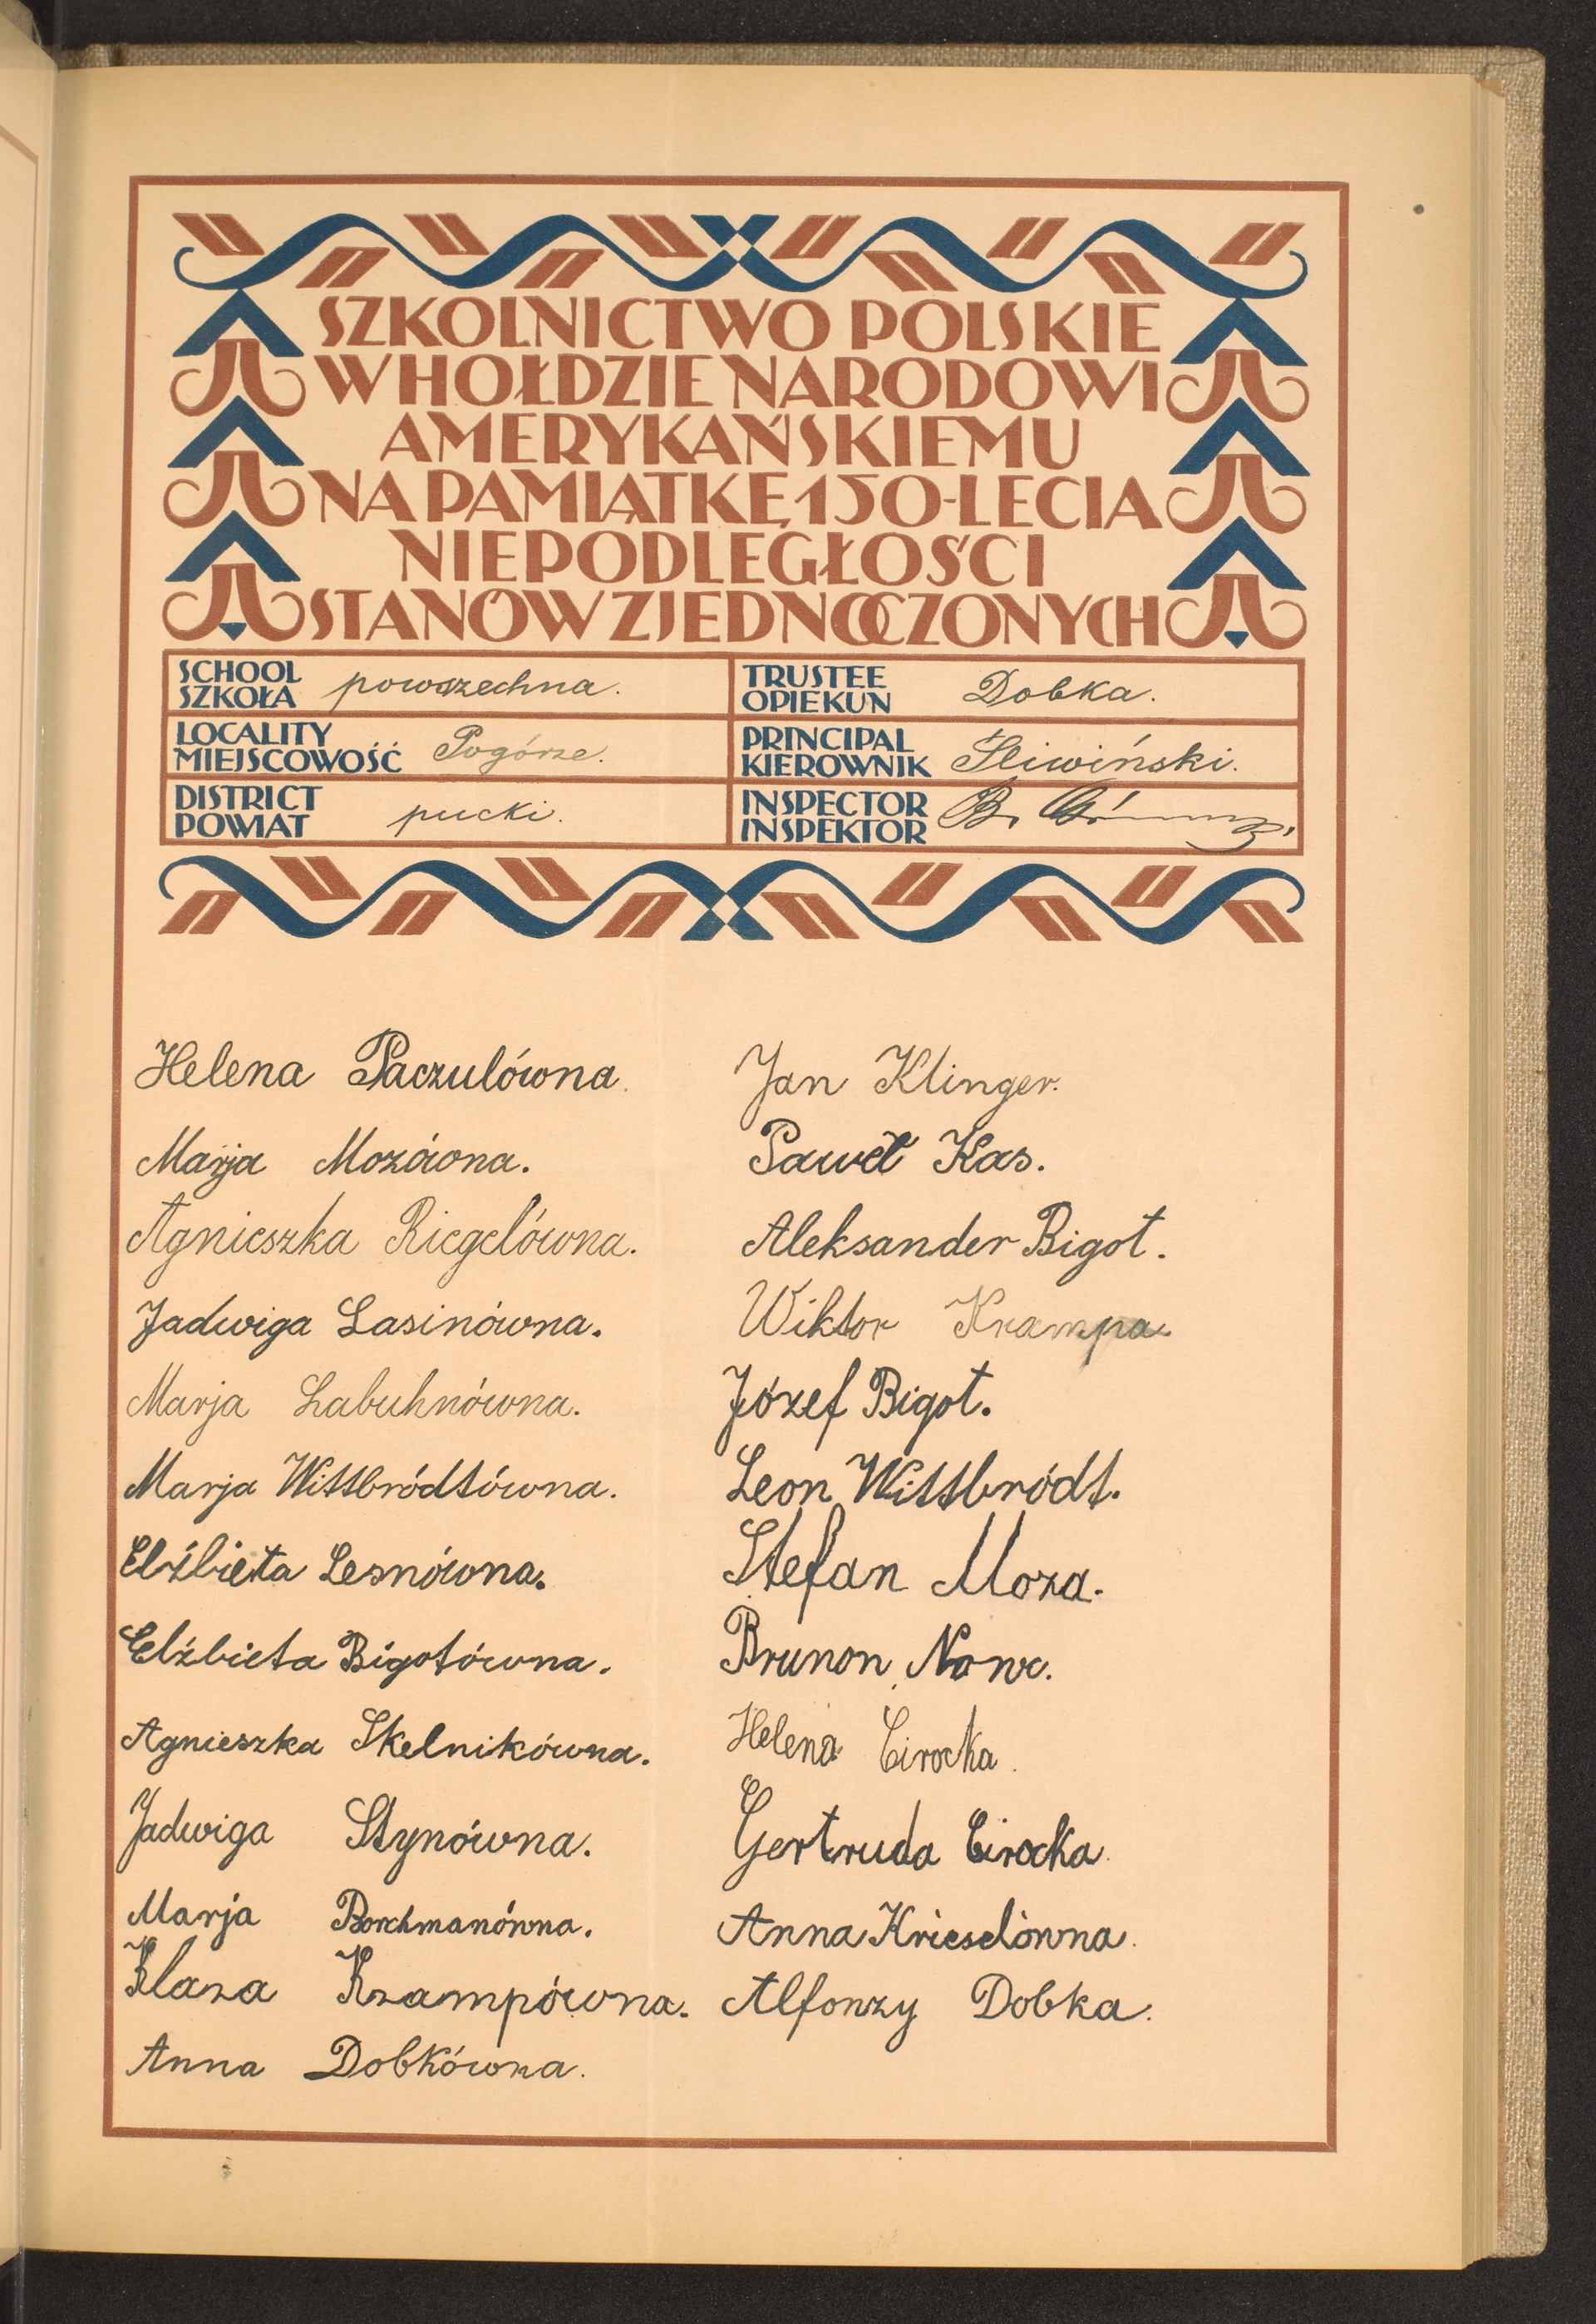 SZKOLNICTWO POLSKIE
W HOŁDZIE NARODOWI
AMERYKAŃSKIEMU
NA PAMIĄTKĘ 150-LECIA
NIEPODLEGŁOŚCI
STANÓW ZJEDNOCZONYCH
SCHOOL
SZKOŁA powszechna.
LOCALITY
MIEJSCOWOŚĆ Pogórze.
DISTRICT
POWIAT pucki.
TRUSTEE
OPIEKUN Dobka.
PRINCIPAL
KIEROWNIK Śliwiński.
INSPECTOR
INSPEKTOR B.
Helena Paczulówna.
Marja Mozówna.
Agnieszka Riegelówna.
Jadwiga Lasinówna.
Marja Labuhnówna.
Marja Wittbródtówna.
Elżbieta Lesnówna.
Elżbieta Bigotówna.
Agnieszka Skelnikówna.
Jadwiga Stynówna.
Marja Borchmanówna.
Klara Krampówna.
Anna Dobkówna.
Jan Klinger.
Paweł Kas.
Aleksander Bigot.
Wiktor Krampa.
Józef Bigot.
Leon Wittbródt.
Stefan Moza.
Brunon Nowc.
Helena Cirocka.
Gertruda Cirocka.
Anna Krieselówna.
Alfonzy Dobka.